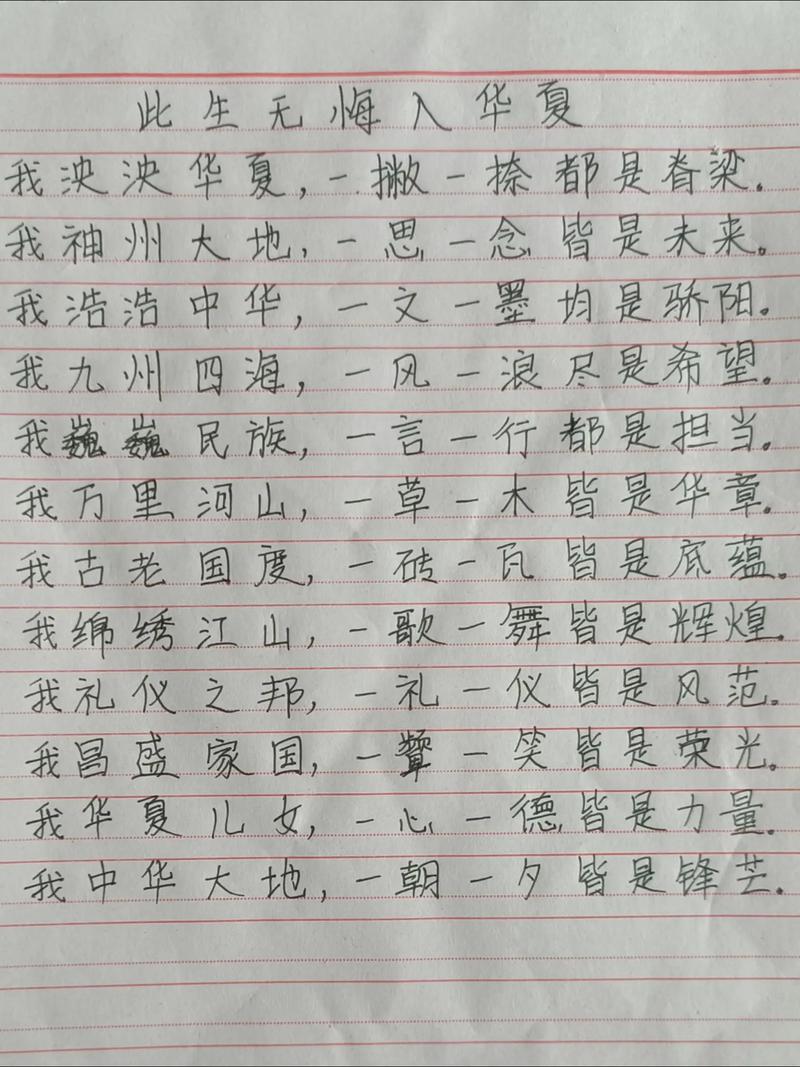 此生无悔入华夏
我泱泱华夏,一撇一捺都是脊梁。
我神州大地,一思一念皆是未来。
我浩浩中华,一文一墨均是骄阳。
我九州四海,一风一浪尽是希望。
我巍巍民族,一言一行都是担当。
我万里河山,一草一木皆是华章。
我古老国度,一砖一瓦皆是底蕴。
我绵绣江山,一歌一舞皆是辉煌。
我礼仪之邦,一礼一仪皆是风范。
我昌盛家国,一颦一笑皆是荣光。
我华夏儿女,一心一德皆是力量。
我中华大地,一朝一夕皆是锋芒。